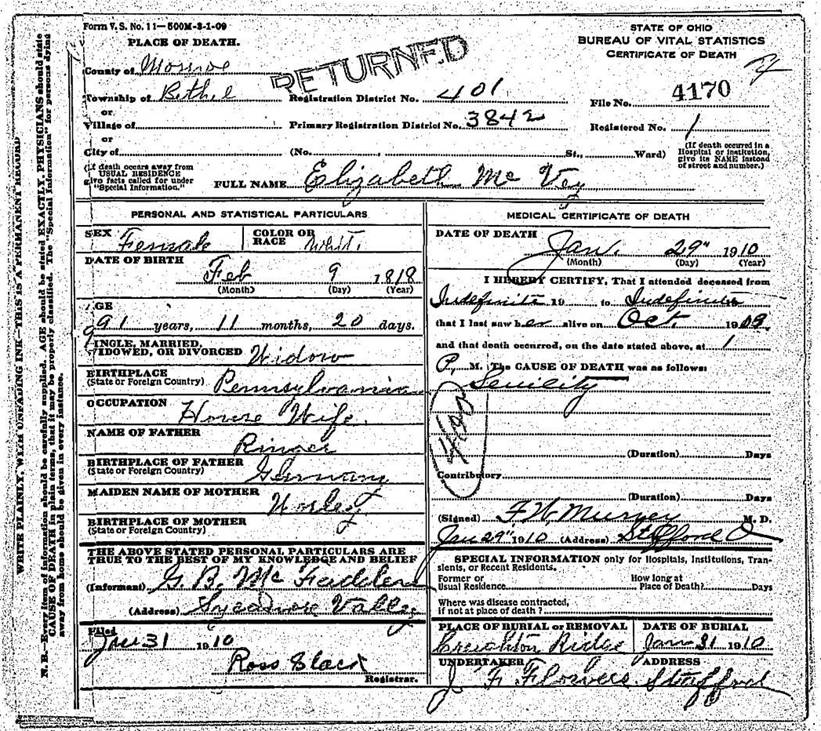 Form V. S. No. 11—500M-3-1-09
PLACE OF DEATH.
County of Monroe
Township of Bethel
or
Village of
or
City of
(If death occurs away from
USUAL RESIDENCE
give facts called for under
"Special Information."
RETURNED
Registration District No. 401
Primary Registration District No. 3842
(No. St., Ward)
STATE OF OHIO
BUREAU OF VITAL STATISTICS
CERTIFICATE OF DEATH
File No. 4170
Registered No. 1
(If death occurred in a
Hospital or Institution,
give its NAME instead
of street and number.)
FULL NAME Elizabeth Mc Vey
PERSONAL AND STATISTICAL PARTICULARS
SEX Female COLOR OR RACE White
DATE OF BIRTH
Feb 9 1818
(Month) (Day) (Year)
AGE
91 years, 11 months, 20 days.
SINGLE, MARRIED,
WIDOWED, OR DIVORCED Widow
BIRTHPLACE
(State or Foreign Country) Pennsylvania
OCCUPATION
House Wife.
NAME OF FATHER
BIRTHPLACE OF FATHER
(State or Foreign Country) Germany
MAIDEN NAME OF MOTHER
BIRTHPLACE OF MOTHER
(State or Foreign Country)
THE ABOVE STATED PERSONAL PARTICULARS ARE
TRUE TO THE BEST OF MY KNOWLEDGE AND BELIEF
(Informant) G. B. Mc Fadden
(Address) Sycamore Valley
Filed
Jan 31 1910
Ross Slack
Registrar.
MEDICAL CERTIFICATE OF DEATH
DATE OF DEATH
Jan. 29" 1910
(Month) (Day) (Year)
I HEREBY CERTIFY, That I attended deceased from
Indefinite 19 to Indefinite
that I last saw her alive on Oct. 1909
and that death occurred, on the date stated above, at 1
P. M. The CAUSE OF DEATH was as follows:
Senility
(Duration) Days
Contributory
(Duration) Days
(Signed) F. W. M. D.
Jan 29" 1910 (Address) Stafford O
SPECIAL INFORMATION only for Hospitals, Institutions, Tran-
sients, or Recent Residents.
Former or
Usual Residence
How long at
Place of Death? Days
Where was disease contracted,
if not at place of death?
PLACE OF BURIAL or REMOVAL
Creighton Ridge
DATE OF BURIAL
Jan 31 1910
UNDERTAKER
J F Flowers
ADDRESS
Stafford
WRITE PLAINLY, WITH UNFADING INK—THIS IS A PERMANENT RECORD
N. B.—Every item of information should be carefully supplied. AGE should be stated EXACTLY. PHYSICIANS should state
CAUSE OF DEATH in plain terms, that it may be properly classified. The "Special Information" for persons dying
away from home should be given in every instance.